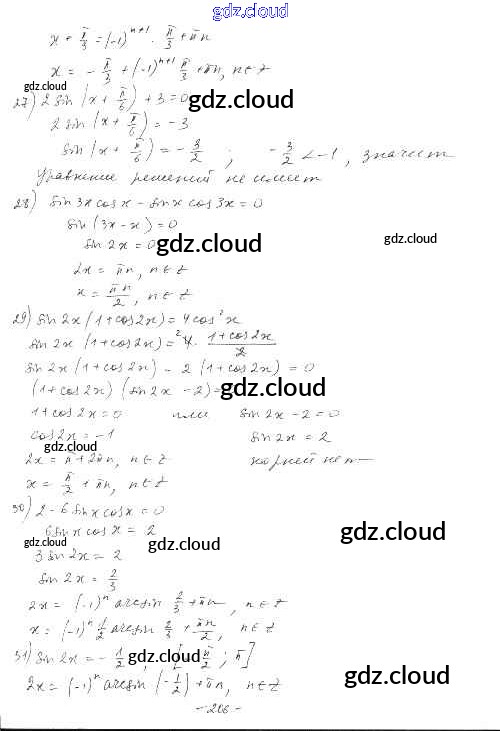 gdz.cloud
x + π/3 = (-1)^(n+1) · π/3 + πn
x = - π/3 + (-1)^(n+1) π/3 + πn, n∈Z
gdz.cloud
27) 2 sin (x + π/6) + 3 = 0
gdz.cloud
2 sin (x + π/6) = -3
sin (x + π/6) = - 3/2 ; - 3/2 < -1, значит
Уравнение решений не имеет
28) sin 3x cos x - sin x cos 3x = 0
sin (3x - x) = 0
sin 2x = 0
gdz.cloud
gdz.cloud
2x = πn, n∈Z
x = πn/2, n∈Z
29) sin 2x (1 + cos 2x) = 4 cos² x
sin 2x (1 + cos 2x) = ²4 · (1 + cos 2x)/2
sin 2x (1 + cos 2x) - 2 (1 + cos 2x) = 0
(1 + cos 2x) (sin 2x - 2) =
gdz.cloud
1 + cos 2x = 0 или sin 2x - 2 = 0
cos 2x = -1 sin 2x = 2
gdz.cloud
2x = π + 2πn, n∈Z корней нет
x = π/2 + πn, n∈Z
30) 2 - 6 sin x cos x = 0
6 sin x cos x = 2
gdz.cloud
gdz.cloud
gdz.cloud
3 sin 2x = 2
sin 2x = 2/3
2x = (-1)^n arcsin 2/3 + πn, n∈Z
x = (-1)^n 1/2 arcsin 2/3 + πn/2, n∈Z
31) sin 2x = - 1/2, ; π]
gdz.cloud
gdz.cloud
2x = (-1)^n arcsin (- 1/2) + πn, n∈Z
- 206 -